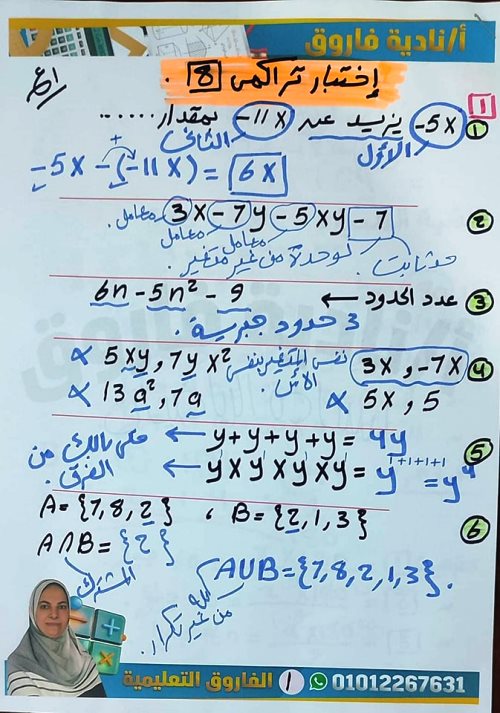 أ/نادية فاروق
إختبار تراكمى 8 .
1
① -5x يزيد عن -11x بمقدار .......
الأول الثانى
-5x - (-11x) = 6x
+
② 3x - 7y - 5xy - 7
معامل معامل معامل
حد ثابت . لوحدة من غير متغير .
③ عدد الحدود ← 6n - 5n² - 9
3 حدود جبرية .
④ 3x , -7x نفس المتغير بنفس الأس . 5xy , 7yx²
5x , 5 13a² , 7a
⑤ y+y+y+y = 4y ← خلى بالك من
y×y×y×y = y¹⁺¹⁺¹⁺¹ = y⁴ ← الفرق .
⑥ A = {7, 8, 2} ، B = {2, 1, 3}
A∩B = {2}
المشترك
A∪B = {7, 8, 2, 1, 3} .
كله من غير تكرار .
الفاروق التعليمية ١ 01012267631